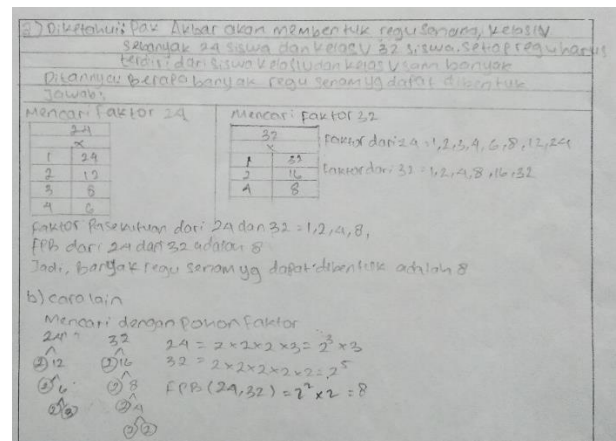 a) Diketahui: Pak Akbar akan membentuk regu senam, kelas IV
sebanyak 24 siswa dan kelas V 32 siswa. setiap regu harus
terdiri dari siswa kelas IV dan kelas V sama banyak
Ditannya: Berapa banyak regu senam yg dapat dibentuk
Jawab:
Mencari faktor 24
24
x
1 24
2 12
3 8
4 6
Mencari faktor 32
32
x
1 32
2 16
4 8
Faktor dari 24 = 1,2,3,4,6,8,12,24
Faktor dari 32 = 1,2,4,8,16,32
Faktor Pasekutuan dari 24 dan 32 = 1,2,4,8,
FPB dari 24 dan 32 adalah 8
Jadi, banyak regu senam yg dapat dibentuk adalah 8
b) cara lain
Mencari dengan Pohon Faktor
24 32
2 12 2 16
2 6 2 8
2 3 2 4
2 2
24 = 2 x 2 x 2 x 3 = 2³ x 3
32 = 2 x 2 x 2 x 2 x 2 = 2⁵
FPB (24,32) = 2² x 2 = 8